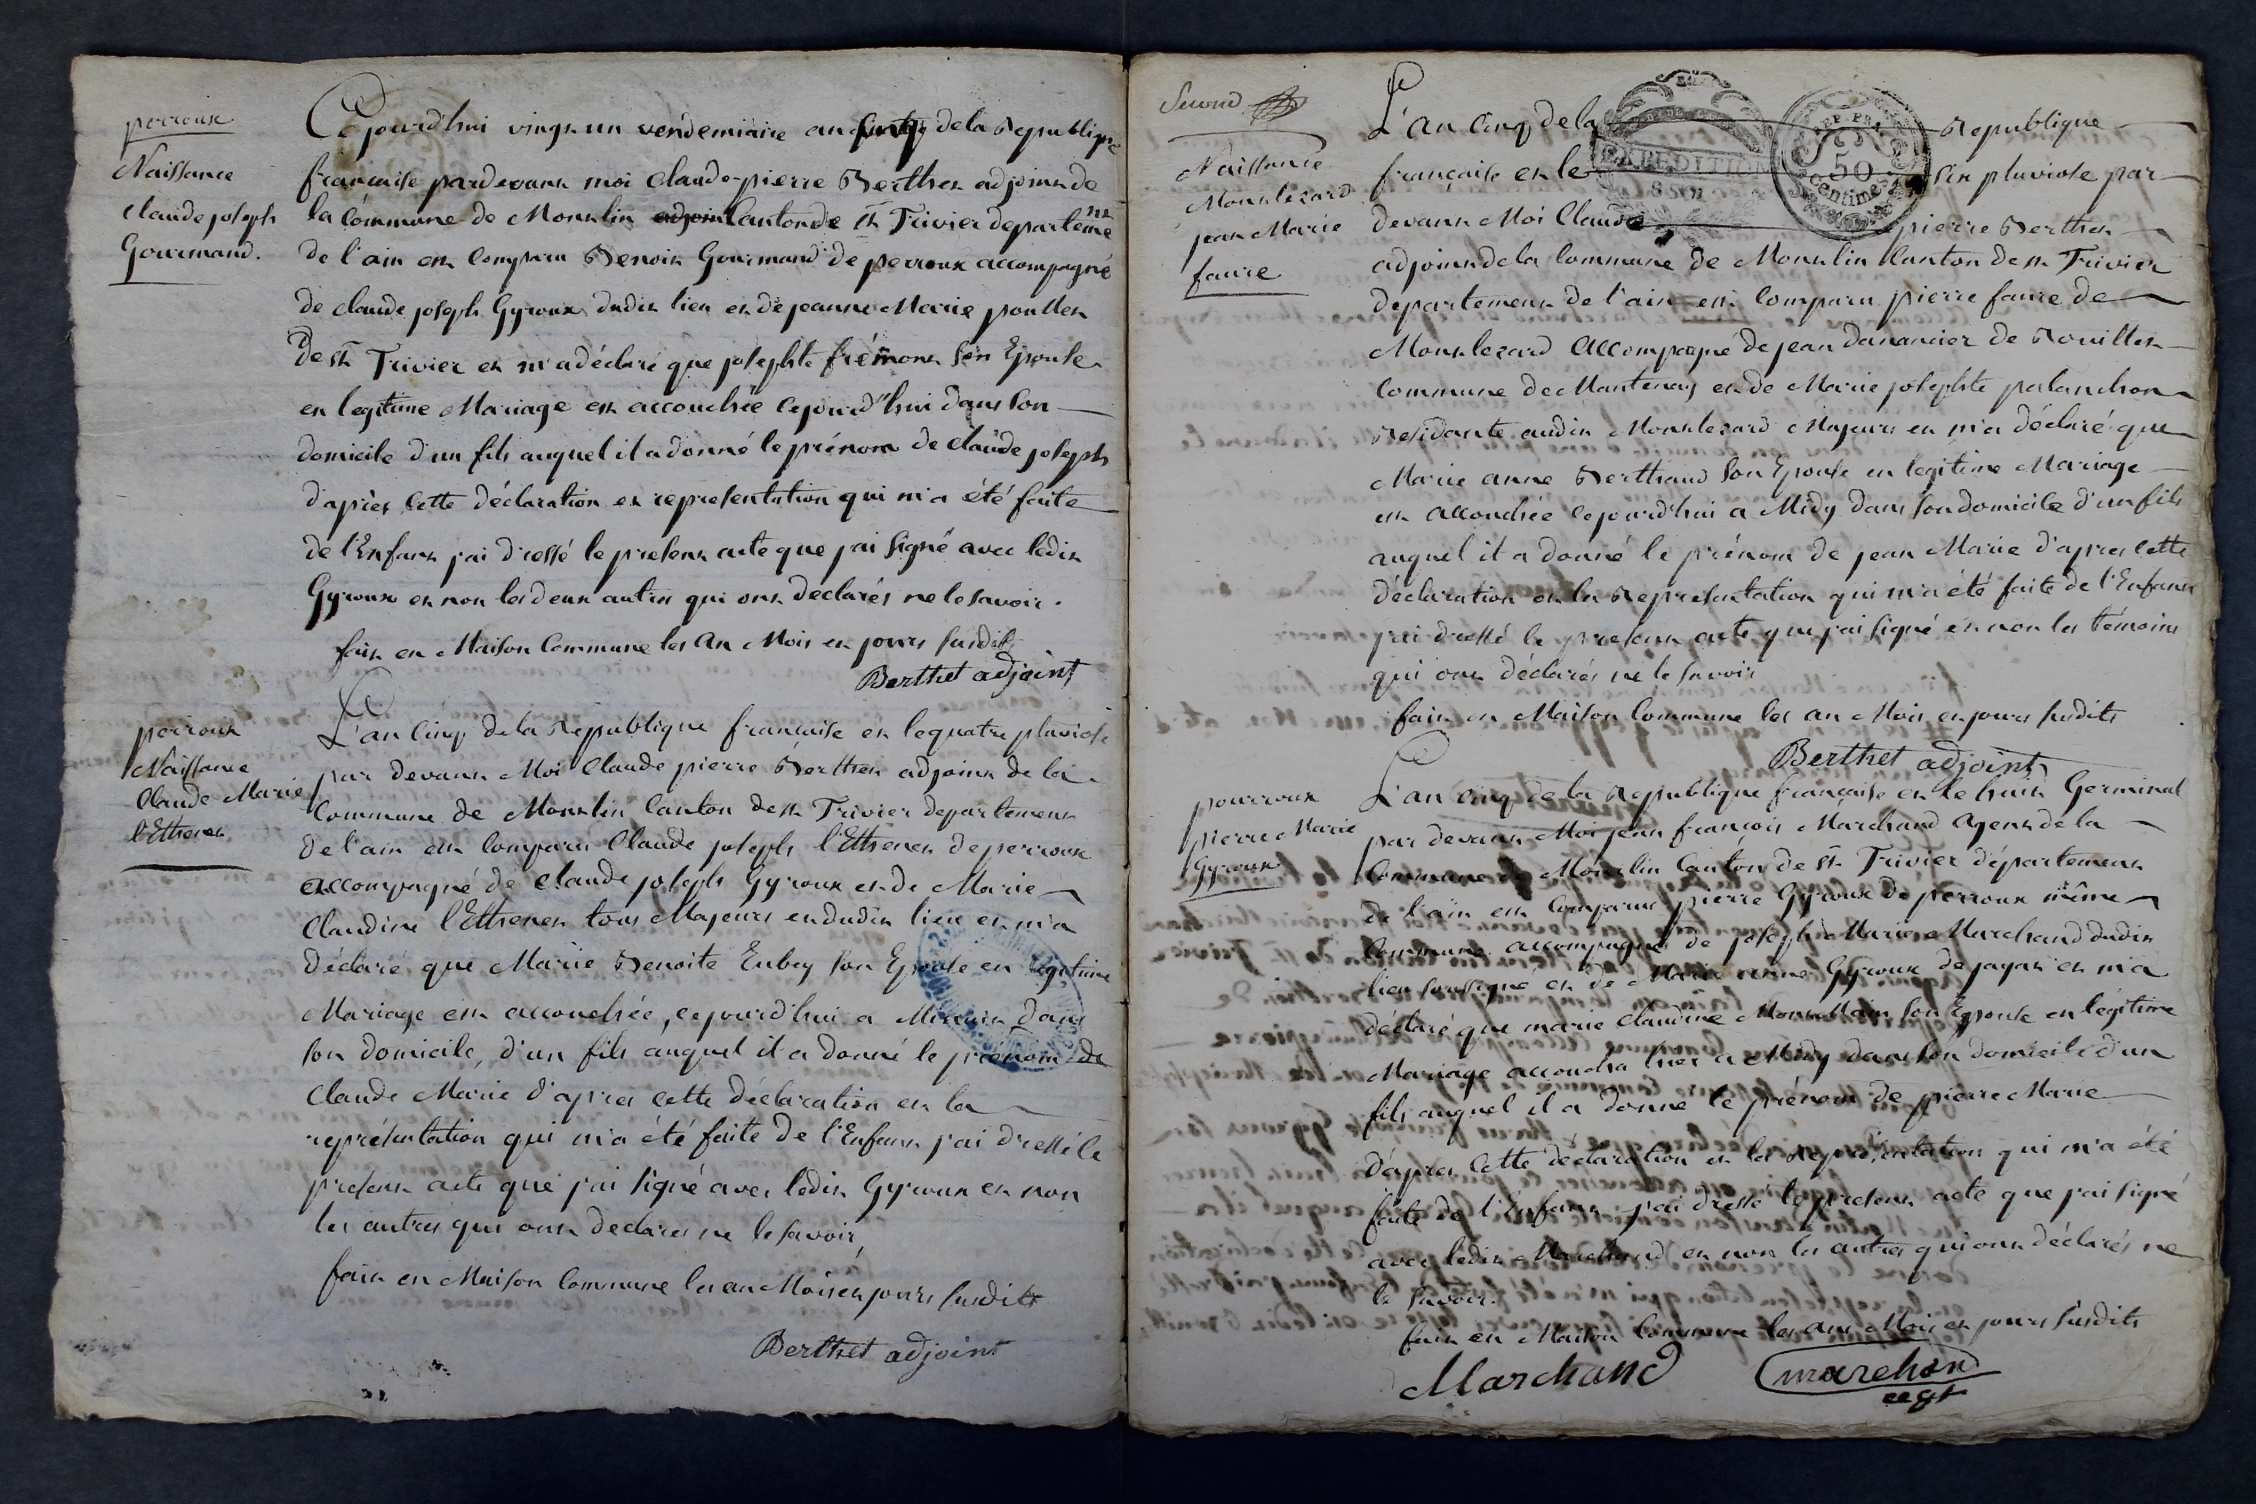 perroux
Naissance
claude joseph
Gourmand.
Cejourd'hui vingt un vendemiaire an cinq de la Republique
francaise pardevant moi Claude-pierre Berthet adjoint de
la Commune de Montlin Canton de St Trivier departemen
de l'ain est Comparu Benoit Gourmand de perroux accompagné
de claude joseph Gyroux dudit lieu et de jeanne Marie poullet
De St Trivier et m'a déclaré que josephte frémont son Epouse
en legitime Mariage est accouchée cejourd'hui dans son
domicile d'un fils auquel il a donné le prénom de claude joseph
d'après cette déclaration et representation qui m'a été faite
de l'Enfant j'ai dressé le present acte que j'ai signé avec ledit
Gyroux et non les deux autres qui ont declarés ne le savoir.
fait en Maison Commune les an Mois et jours susdits
Berthet adjoint
perroux
Naissance
Claude Marie
l'Ethenet
L'an cinq de la Republique francaise et le quatre pluviose
par devant Moi Claude pierre Berthet adjoint de la
Commune de Montlin Canton de st Trivier departement
de l'ain est Comparu Claude joseph l'Ethenet de perroux
accompagné de claude joseph Gyroux et de Marie
Claudine l'Ethenet tous Majeurs et dudit lieu et m'a
déclaré que Marie Benoite Eubey son Epouse en legitime
Mariage est accouchée, cejourd'hui a Minuit dans
son domicile, d'un fils auquel il a donné le prenom de
Claude Marie d'apres cette déclaration et la
représentation qui m'a été faite de l'Enfant j'ai dressé le
present acte que j'ai signé avec ledit Gyroux et non
les autres qui ont declarés ne le savoir
fait en Maison Commune les an Mois et jours susdits
Berthet adjoint
Second
Naissance
Montlezard
jean Marie
faure
EXPEDITION
REP. FRA.
50
centimes
L'an Cinq de la Republique
française et le six pluviose par
devant Moi Claude pierre Berthet
adjoint de la Commune de Montlin Canton de st Trivier
departement de l'ain est Comparu pierre faure de
Montlezard accompagné de jean danancier de Rouillet
Commune de Mantenay et de Marie josephte palanchon
residante audit Montlezard Majeurs et m'a déclaré que
Marie anne Berthaud son Epouse en legitime Mariage
est accouchée cejourd'hui a Midy dans son domicile d'un fils
auquel il a donné le prénom de jean Marie d'apres cette
déclaration et la Representation qui m'a été faite de l'Enfant
j'ai dressé le present acte que j'ai signé et non les témoins
qui ont déclarés ne le savoir
fait en Maison Commune les an Mois et jours susdits
Berthet adjoint
pourroux
pierre Marie
Gyroux
L'an cinq de la Republique française et le huit Germinal
par devant Moi jean françois Marchand Agent de la
Commune de Montlin Canton de St Trivier département
de l'ain est Comparu pierre Gyroux de perroux même
Commune accompagné de joseph Marie Marchand dudit
lieu soussigné et de Marie anne Gyroux de jayat et m'a
déclaré que marie claudine Mont Main son Epouse en légitime
Mariage accoucha hier a Midy dans son domicile d'un
fils auquel il a donné le prénom de pierre Marie
d'apres cette déclaration et la Représentation qui m'a été
faite de l'Enfant j'ai dressé le present acte que j'ai signé
avec ledit Marchand et non les autres qui ont déclarés ne
le savoir.
fait en Maison Commune les an Mois et jours susdits
Marchand marchan
agt